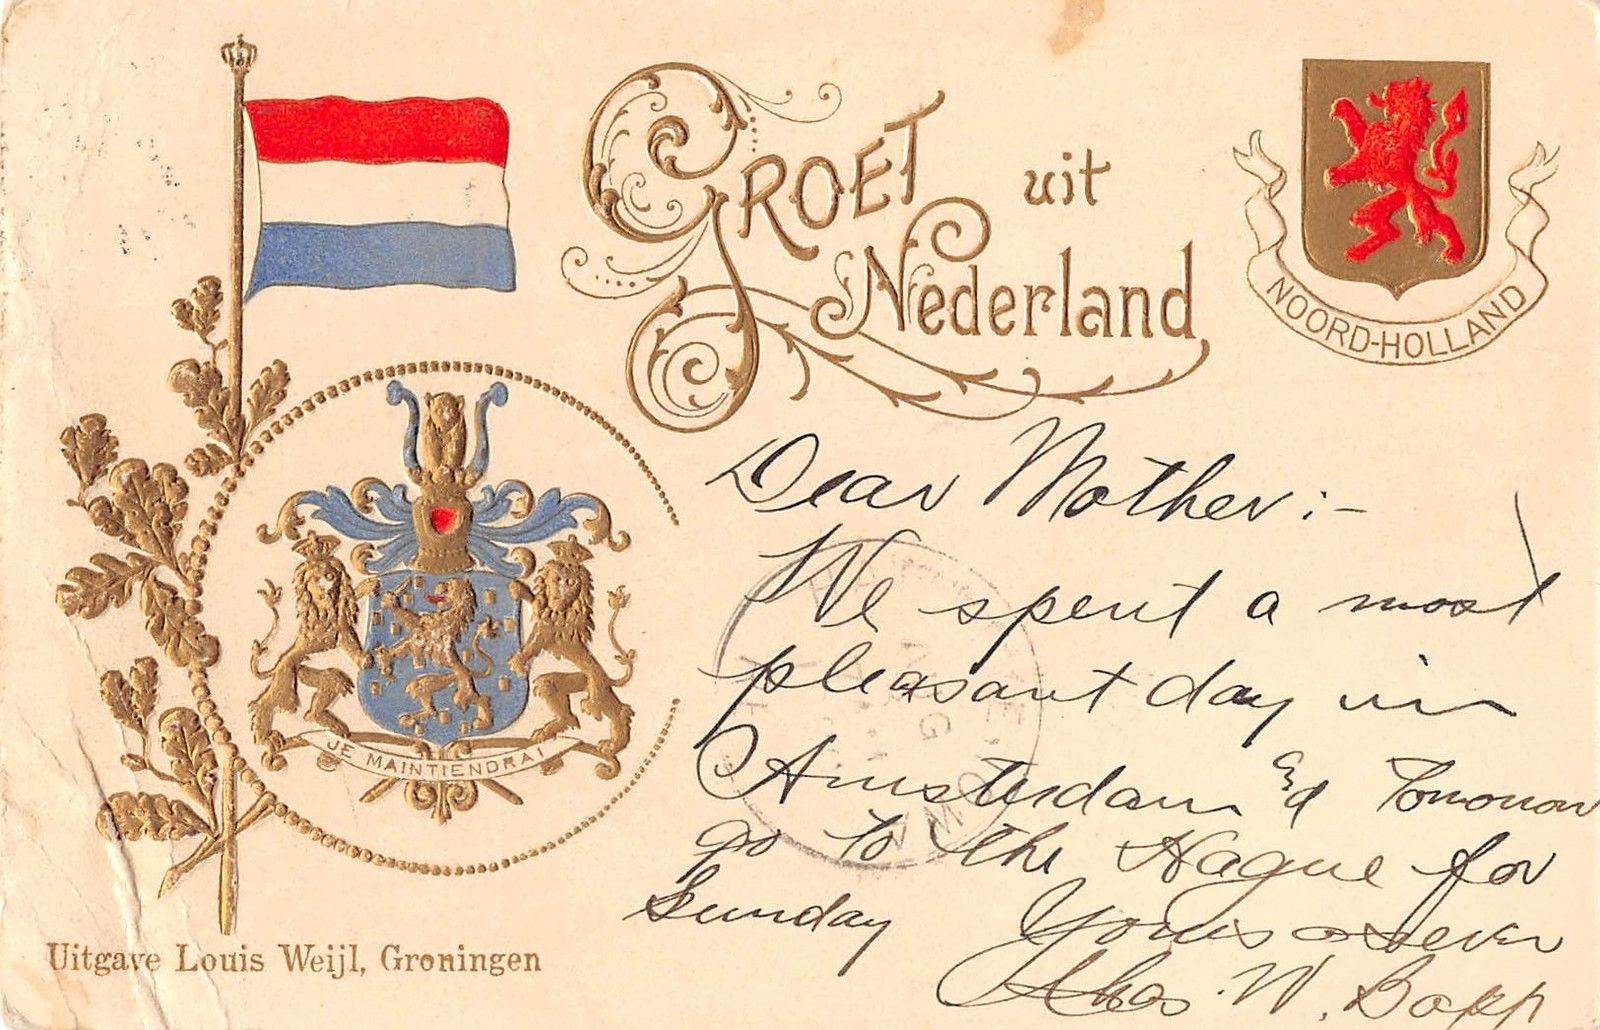 GROET uit
Nederland
NOORD-HOLLAND
JE MAINTIENDRAI
Dear Mother:-
We spent a most
pleasant day in
Amsterdam and Tomorrow
go to the Hague for
Sunday Yours as ever
Chas. W. Bopp
Uitgave Louis Weijl, Groningen